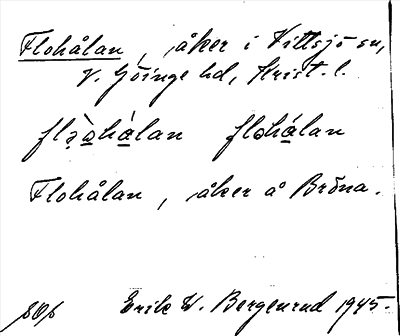 Flohålan, åker i Vittsjö sn,
V. Göinge hd, Krist. l.
flohálan
Flohålan, åker å Bröna.
Erik W. Bergenrud 1945.